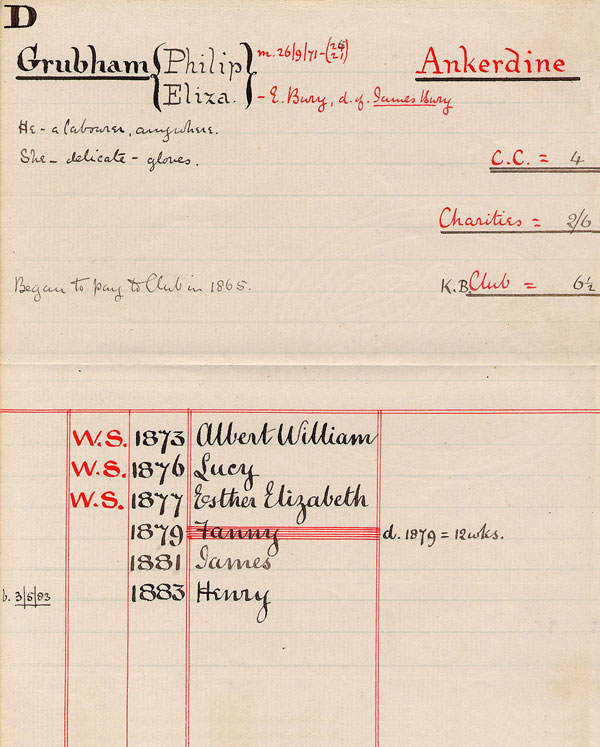 D
Grubham { Philip } m. 26/9/71 - (24/21) Ankerdine
Eliza. - E. Bury, d. of James Bury
He - a labourer, anywhere.
She - delicate - gloves.
C.C. = 4
Charities = 2/6
Began to pay to Club in 1865.
K.B. Club = 6½
W.S. 1873 Albert William
W.S. 1876 Lucy
W.S. 1877 Esther Elizabeth
1879 Fanny d. 1879 = 12 wks.
1881 James
b. 3/5/83 1883 Henry